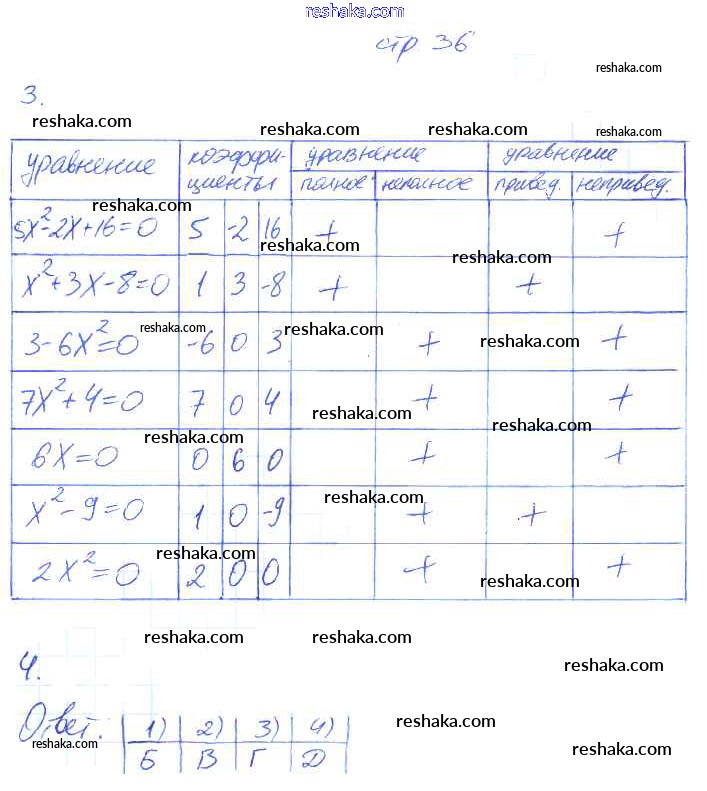 reshaka.com
стр 36
reshaka.com
3.
reshaka.com reshaka.com reshaka.com reshaka.com
уравнение коэффи- уравнение уравнение
циенты полное неполное привед. непривед.
reshaka.com
5x²-2x+16=0 5 -2 16 + +
reshaka.com reshaka.com
x²+3x-8=0 1 3 -8 + +
reshaka.com reshaka.com reshaka.com
3-6x²=0 -6 0 3 + +
7x²+4=0 7 0 4 + +
reshaka.com reshaka.com reshaka.com
6x=0 0 6 0 + +
reshaka.com
x²-9=0 1 0 -9 + +
reshaka.com reshaka.com
2x²=0 2 0 0 + +
reshaka.com
reshaka.com
4. reshaka.com
Ответ: 1) 2) 3) 4)
reshaka.com reshaka.com reshaka.com
Б В Г Д